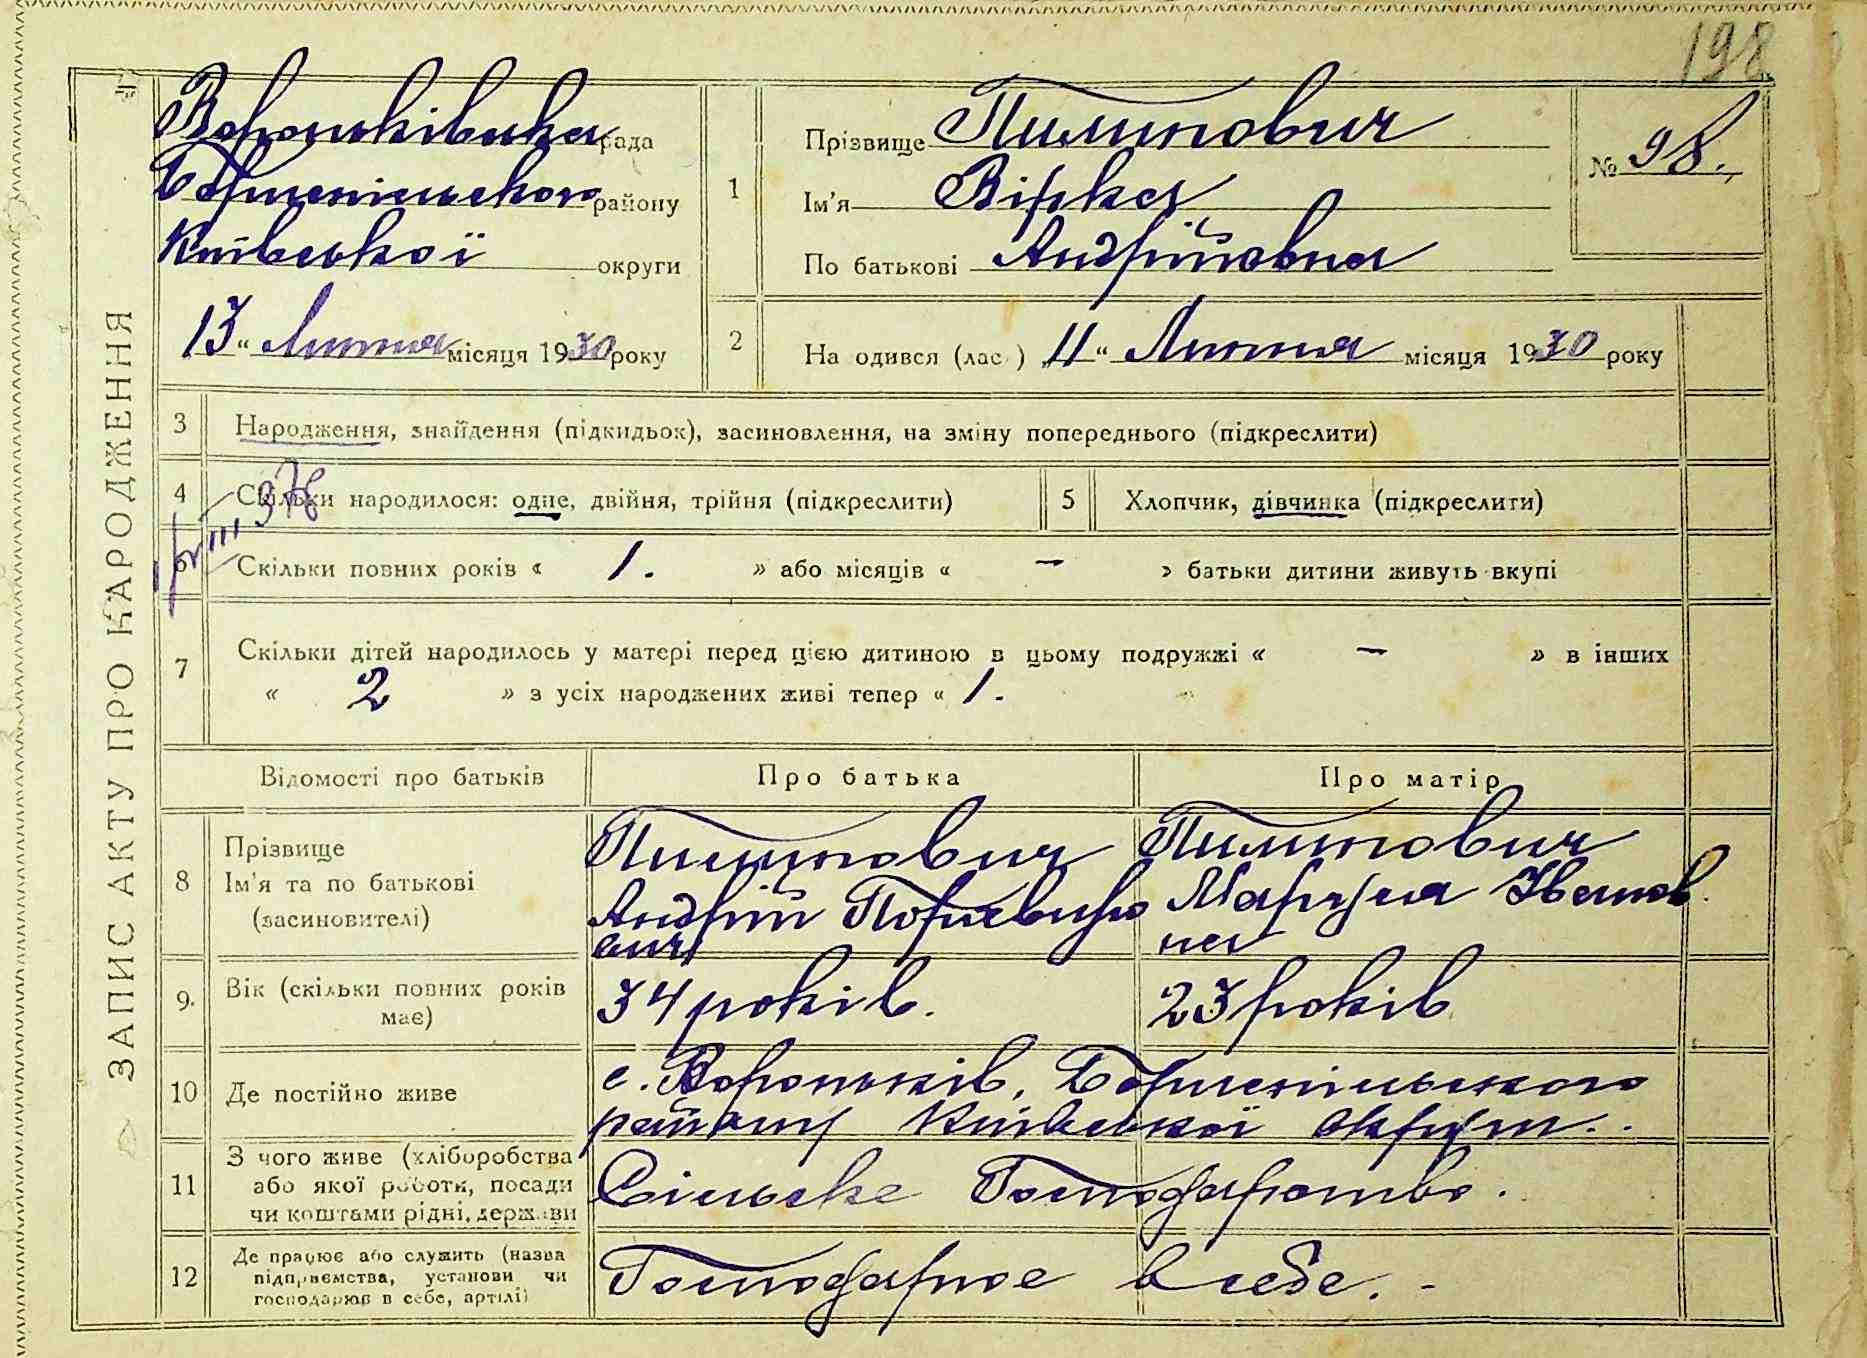 198
ЗАПИС АКТУ ПРО НАРОДЖЕННЯ
Вороньківська рада
Бориспільського району
Київської округи
13 " Липня місяця 1930 року
1
Прізвище Пилипович
Ім'я Вірка
По батькові Андріївна
№ 98.
2
На одився (лас ) 11 " Липня місяця 1930 року
3 Народження, знайдення (підкидьок), засиновлення, на зміну попереднього (підкреслити)
4 Скільки народилося: одне, двійня, трійня (підкреслити)
5 Хлопчик, дівчинка (підкреслити)
6 Скільки повних років « 1. » або місяців « — » батьки дитини живуть вкупі
7 Скільки дітей народилось у матері перед цією дитиною в цьому подружжі « — » в інших
« 2 » з усіх народжених живі тепер « 1.
Відомості про батьків Про батька Про матір
8 Прізвище
Ім'я та по батькові
(засиновителі)
Пилипович
Андрій
Пилипович
Іванов
на
9. Вік (скільки повних років
має)
34 років. 23 років
10 Де постійно живе
с. Вороньків, Бориспільського
району Київської округи..
11 З чого живе (хліборобства
або якої роботи, посади
чи коштами рідні, держави
Сільске Господарство.
12 Де працює або служить (назва
підприємства, установи чи
господарює в себе, артілі)
Господарює в себе. -